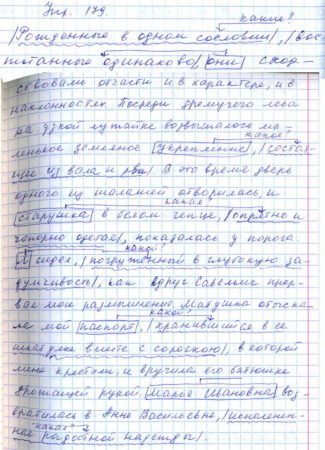 Упр. 179.
какие?
|Рожденные в одном сословии|, |вос
питанные одинаково|, |они| сход-
ствовали отчасти и в характере, и в
наклонностях. Посреди дремучего леса
на узкой лужайке возвышалось ма-
какое?
ленькое земляное |укрепление|, |состоя-
щие из вала и рва|. В это время дверь
одного из шалашей отворилась, и
какая?
|старушка| в белом чепце, |опрятно и
чопорно одетая|, показалась у порога.
какой?
|Я| сидел, |погруженный в глубокую за-
думчивость|, как вдруг Савельич прер-
вал мои размышления. Матушка отыска-
какой?
ла мой |паспорт|, |хранившийся в ее
шкатулке вместе с сорочкою|, в которой
меня крестили, и вручила его батюшке
дрожащей рукой. |Марья Ивановна| воз-
вратилась к Анне Васильевне, |исполнен-
какая?
ная радостной надежды|.